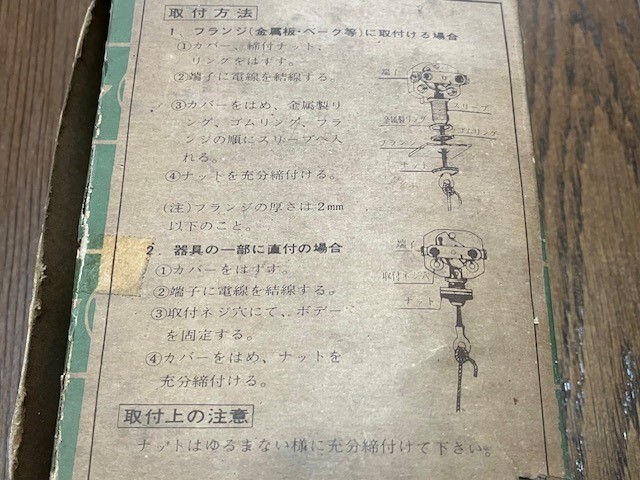 取付方法
1. フランジ(金属板・ベーク等)に取付ける場合
①カバー、締付ナット、
リングをはずす。
②端子に電線を結線する。
③カバーをはめ、金属製リ
ング、ゴムリング、フラ
ンジの順にスリーブへ入
れる。
④ナットを充分締付ける。
(注)フランジの厚さは2mm
以下のこと。
端子
スリーブ
金属製リング
ゴムリング
フランジ
ナット
2. 器具の一部に直付の場合
①カバーをはずす。
②端子に電線を結線する。
③取付ネジ穴にて、ボデー
を固定する。
④カバーをはめ、ナットを
充分締付ける。
端子
取付ネジ穴
ナット
取付上の注意
ナットはゆるまない様に充分締付けて下さい。